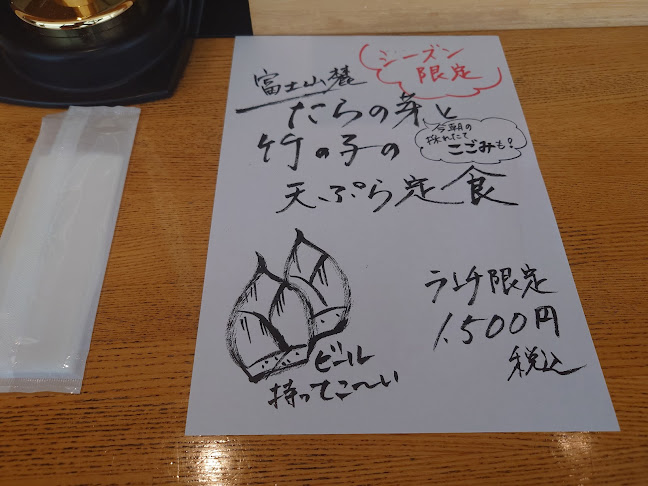 シーズン
限定
富士山麓
たらの芽と
今朝の
採れたて
こごみも?
竹の子の
天ぷら定食
ランチ限定
1,500円
税込
ビール
持ってこ〜い